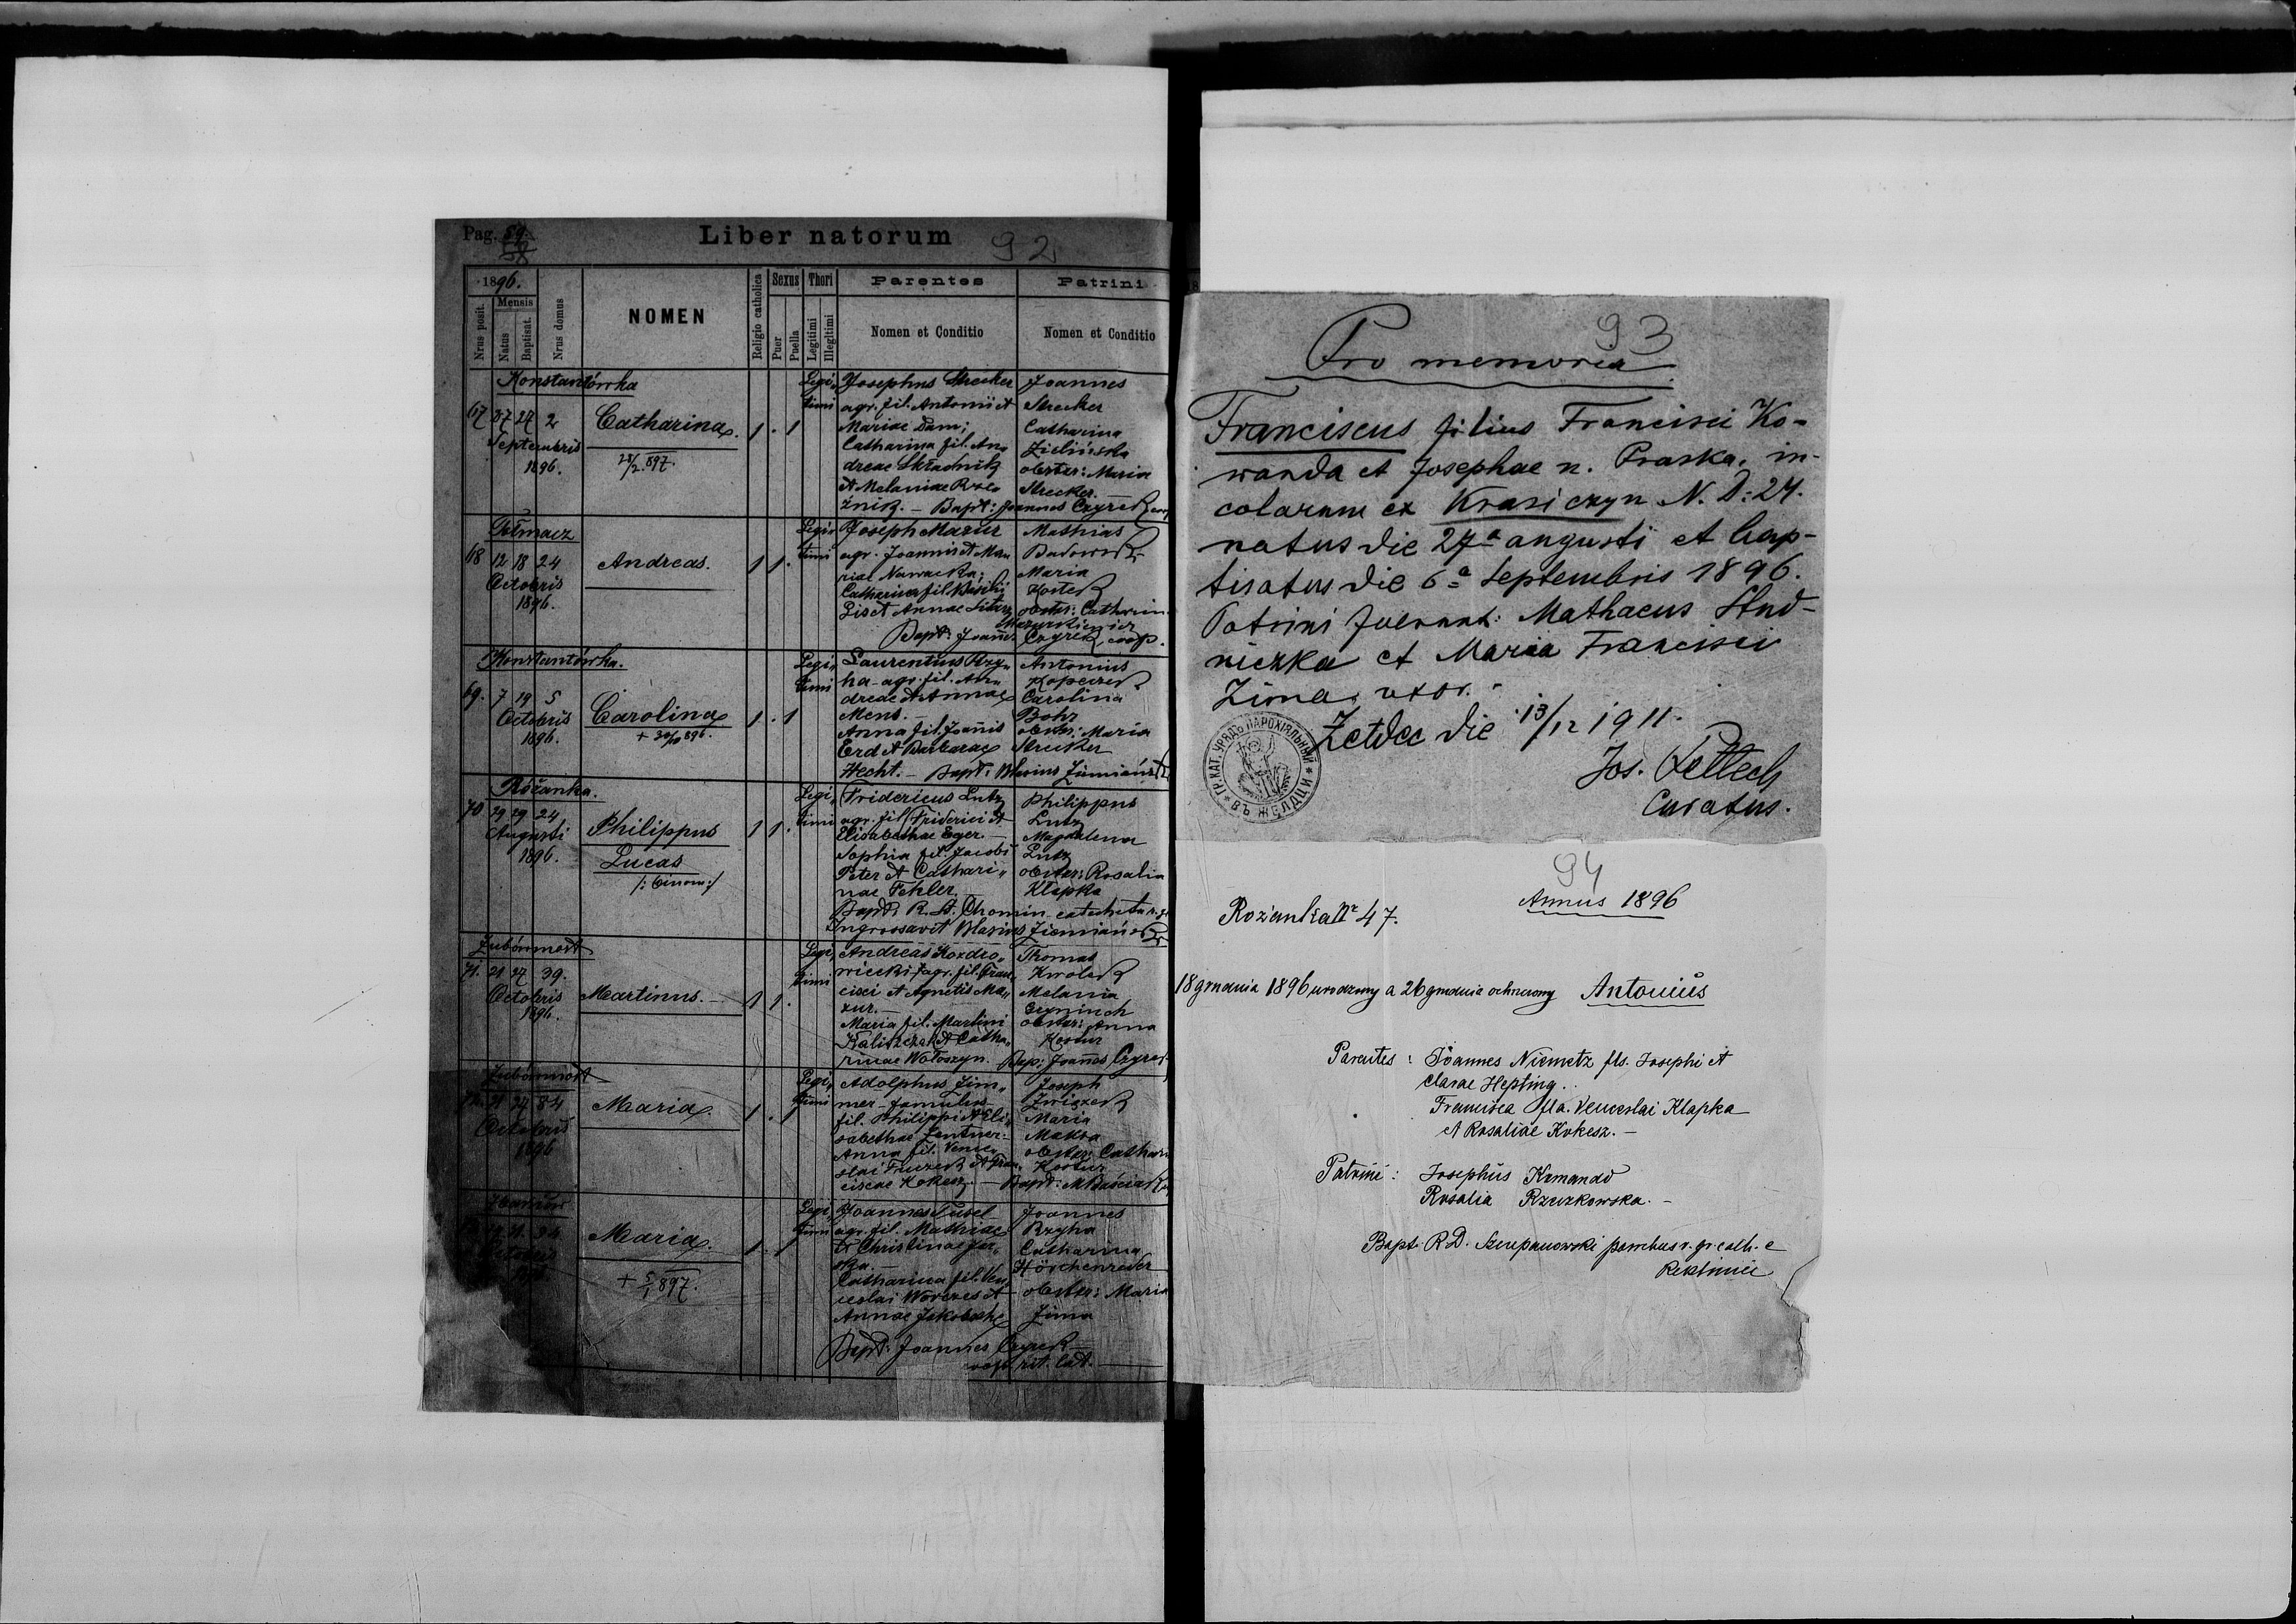 Pag. 59.
Liber natorum
92
1896.
Nrus posit.
Mensis
Natus
Baptisat.
Nrus domus
NOMEN
Religio catholica
Sexus
Puer
Puella
Thori
Legitimi
Illegitimi
Parentes
Nomen et Conditio
Patrini
Nomen et Conditio
Konstantówka
67 27 27 2
Septembris
1896.
Catharina.
28/2.897.
1 . 1
Legi„
timi
Josephus Strecker
agr. fil. Antonii et
Mariae Dam;
Catharina fil. An„
dreae Składnik
et Melaniae Rze„
źnik. — Bapt: Joannes Czyrek
Joannes
Strecker
Catharina
Zielińska
obster: Maria
Strecker.
Tłumacz
68 12 18 24
Octobris
1896.
Andreas.
1 1 .
Legi„
timi
Joseph Mazur
agr. Joannis et Ma„
riae Nawacka;
Catharina fil. Basilii
Lis et Annae
Bapt: Joannes Czyrek, coop.
Mathias
Maria
Koster
obster: Catharin
Mazurkiewicz
Konstantówka.
69. 7 19 5
Octobris
1896.
Carolina
+ 30/10 896.
1 . 1
Legi„
timi
Laurentius Rzy„
ha - agr. fil. An„
dreae et Annae
Ment. —
Anna fil. Joannis
Erd et Barbarae
Hecht. — Bapt: Blasius
Antonius
Kopeczek
Carolina
Bohr
obster: Maria
Strecker
Różanka.
70 29 29 24
Augusti
1896.
Philippus
Lucas
/: binom :/
1 1 .
Legi„
timi
Fridericus Lutz
agr. fil. Friderici et
Elisabethae Eger. —
Sophia fil. Jacobi
Peter et Cathari„
nae Fehler
Bapt: R. D. Chomin catecheta
Ingrossavit Blasius
Philippus
Lutz
Magdalena
Lutz
obster: Rosalia
Klapka
71. 21 27 39.
Octobris
1896.
Martinus. —
1 1 .
Legi„
timi
Andreas Kozdro„
wiecki agr. fil. Fran„
cisci et Agnetis Ma„
zur. —
Maria fil. Martini
et Catha„
rinae Wołoszyn. Bap: Joannes Czyrek
Thomas
Kwolek
Melania
obster: Anna
Kostur
72. 21 27 84
Octobris
1896
Maria.
1 . 1
Legi„
timi
Adolphus Zim„
mer - famulus
fil. Philippi et Eli„
sabethae Zentner.
Anna fil. Vence„
slai et Fran„
ciscae Kokesz. — Bapt:
Joseph
Maria
Maksa
obster: Cathar
Kostur
Octobris
Maria.
+ 5/1 897.
1 . 1
Legi„
timi
Joannes Tusel
agr. fil. Mathiae
et Christinae
Catharina fil. Ven„
ceslai et
Annae
Bapt: Joannes Czyrek
coop. rit. lat.
Joannes
Rzyha
Catharina
obster: Maria
Zima
93
Pro memoria
Franciscus filius Francisci Ko-
wanda et Josephae n. Praska, in-
colarum ex Krasiczyn N. D: 27.
natus die 27ª augusti et bap-
tisatus die 6ª Septembris 1896.
Patrini fuerunt: Mathaeus Stud-
niczka et Maria Francisci
Zima, uxor. -
Zetdec die 13/12 1911.
Jos. Pettech
Curatus.
ГР. КАТ. УРЯДЪ ПАРОХІЯЛЬНЫЙ
94
Annus 1896
Rożanka Nr 47.
18 grudnia 1896 urodzony a 26 grudnia ochrzczony Antonius
Parentes : Joannes Niemetz fls. Josephi et
Clarae Hepting.
Francisca fla. Venceslai Klapka
et Rosaliae Kokesz. —
Patrini : Josephus Komando
Rosalia Rzuzkowska. —
Bapt. R. D. Szczepanowski parochus r. gr. cath. e